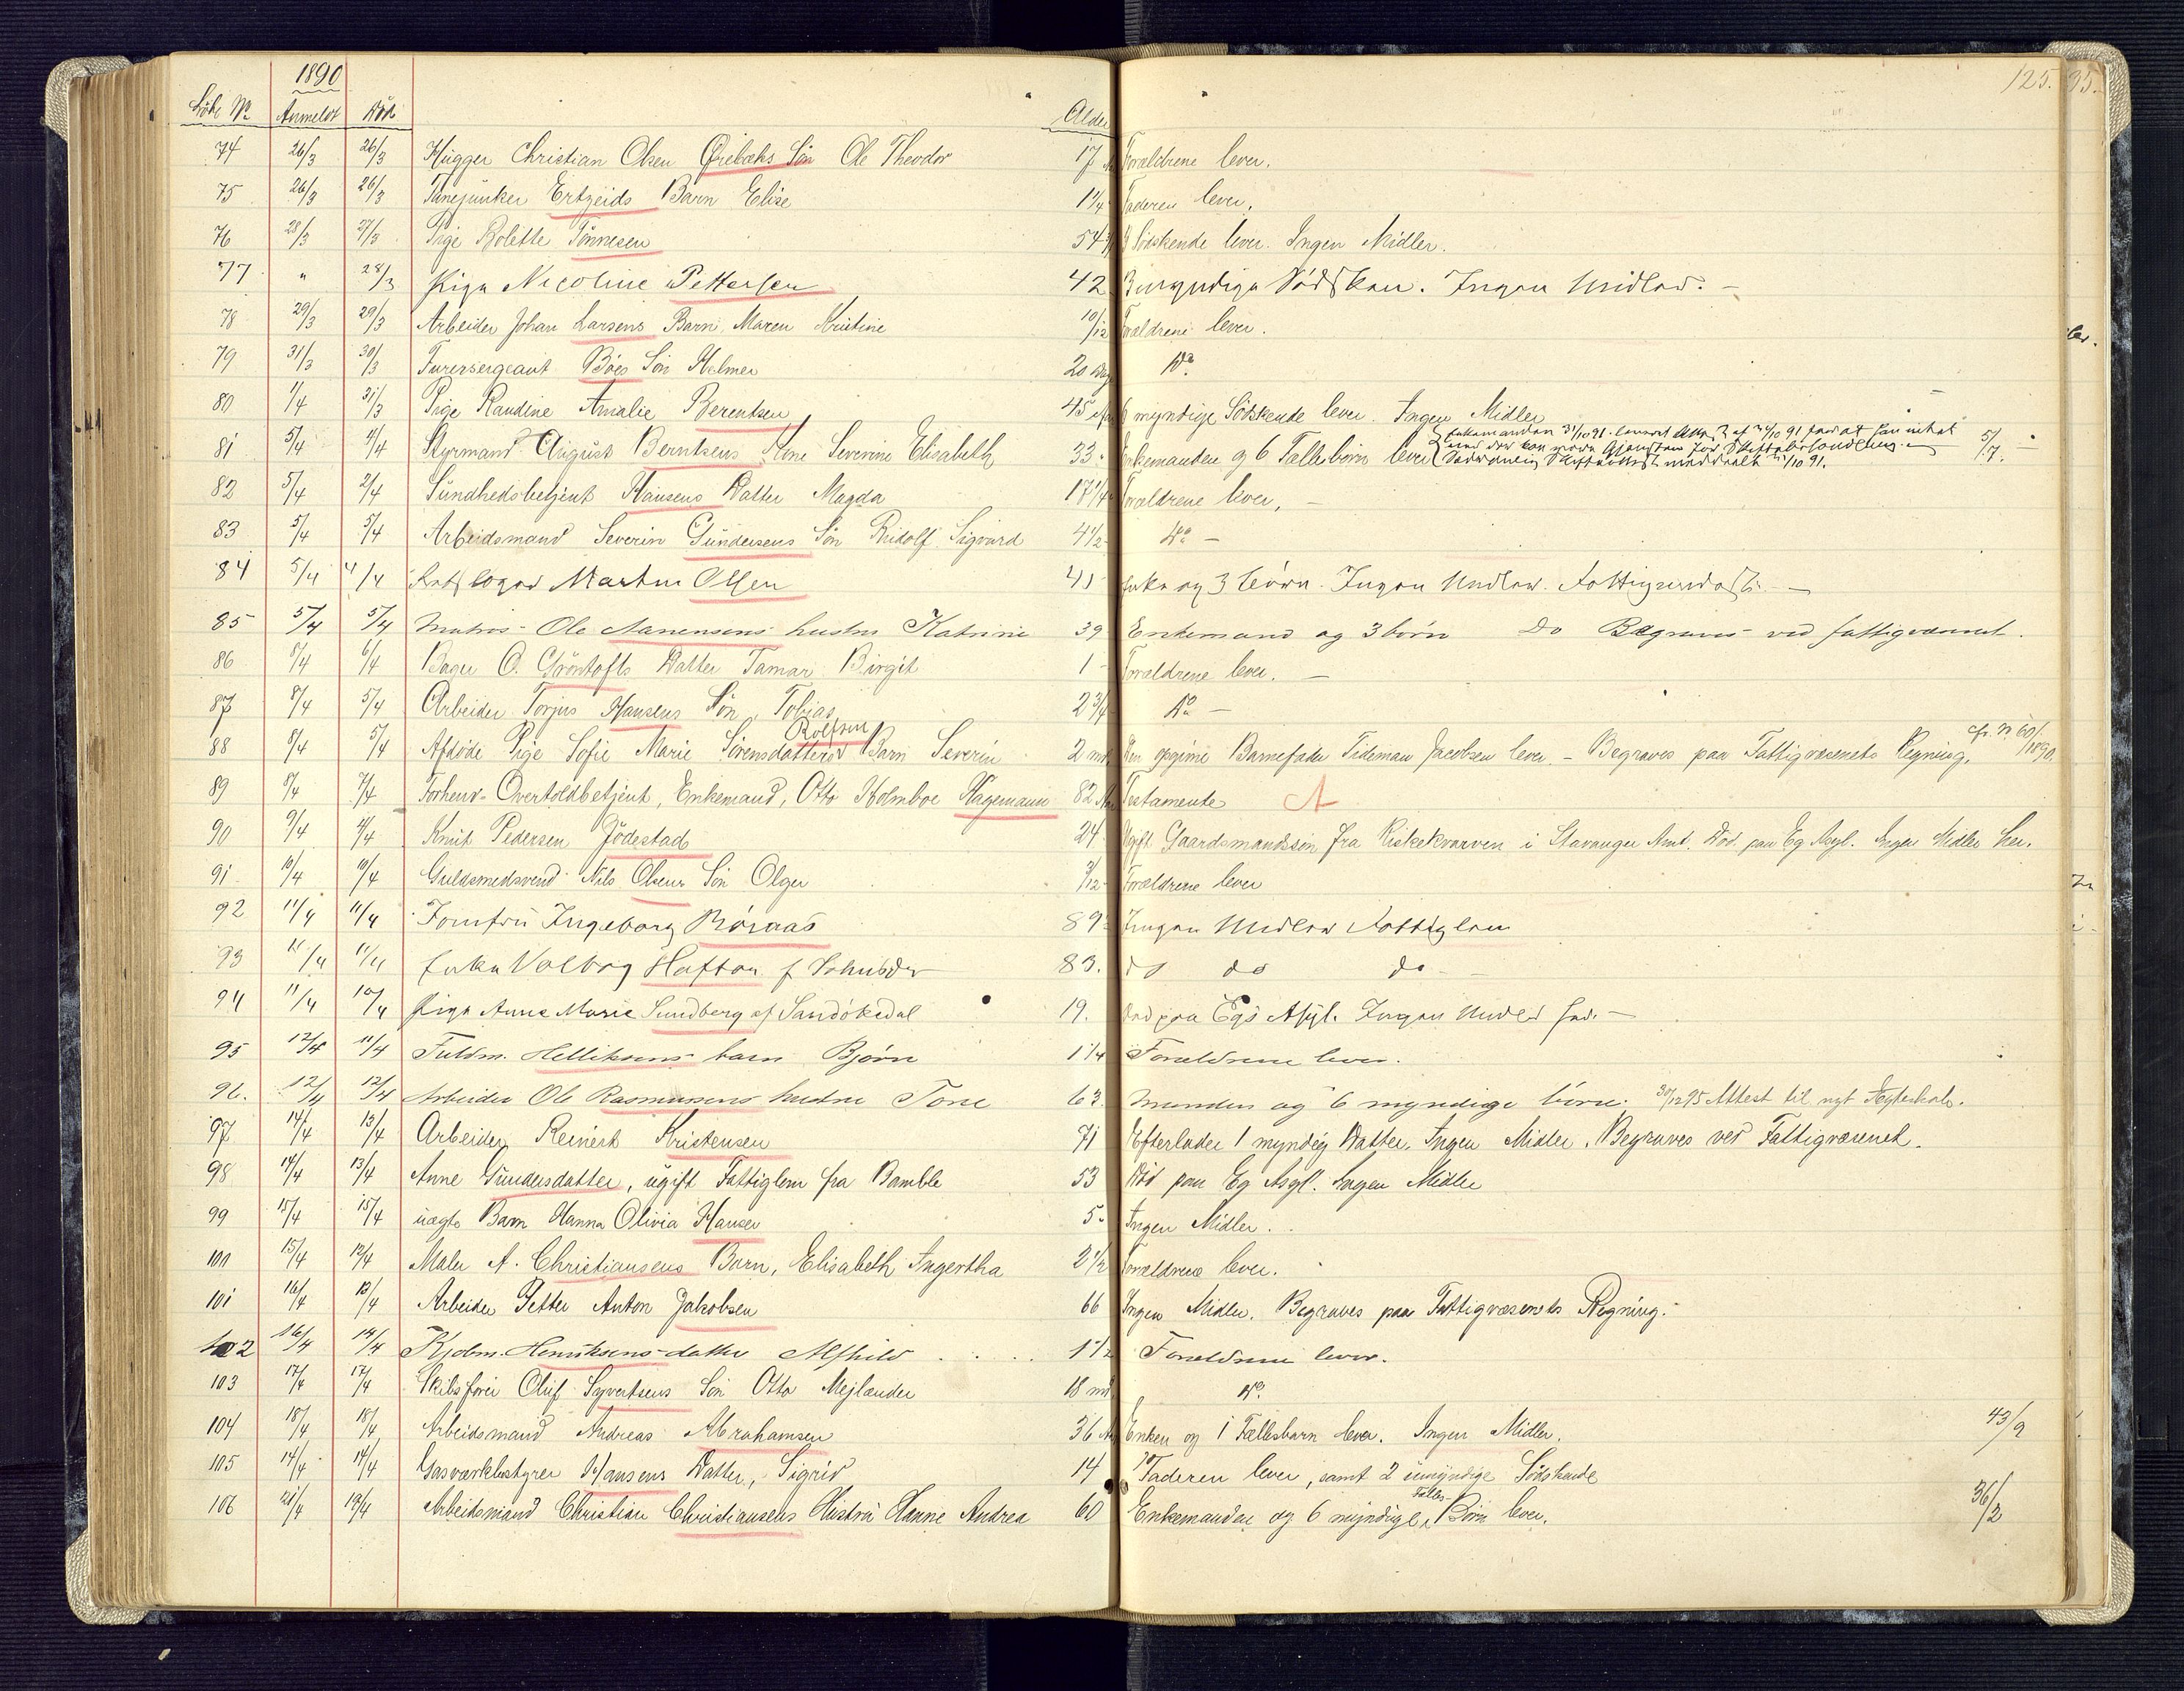 125.
1890
Löbe No Anmeldt Död Alder
74 26/3 26/3 Hugger Christian Olsen Öiebæks Sön Ole Theodor 17 Forældrene lever.
75 26/3 26/3 Barn Elise 1 1/4 Faderen lever.
76 28/3 27/3 Pige Rolette Tönnesen 54 Södskende lever. Ingen Midler.
77 " 28/3 Pige Nicoline Pettersen 42 3 umyndige Södsken. Ingen Midler. -
78 29/3 29/3 Arbeider Johan Larsens Barn Maren Kristine 10/12 Forældrene lever.
79 31/3 30/3 Furersergeant Böes Sön Helmer 20 Dage Do
80 1/4 31/3 Pige Randine Amalie Berentsen 45 6 myndige Södskende lever. Ingen Midler
81 5/4 4/4 Styrmand August Berntsens Kone Severine Elisabeth 33 Enkemanden og 6 Fællesbörn lever Enkemanden 31/10 91 5/7.
82 5/4 2/4 Sundhedsbetjent Hansens Datter Magda 17 1/4 Forældrene lever. -
83 5/4 5/4 Arbeidsmand Severin Gundersens Sön Rudolf Sigvard 4 1/2 Do -
84 5/4 4/4 Martin Olsen Enke og 3 Börn. Ingen Midler.
85 5/4 5/4 Matros Ole Aanensens hustru Katrine 39 Enkemand og 3 börn Do Begraves ved fattigvæsenet.
86 8/4 6/4 Bager O. Gröntofts Datter Tamar Birgit 1 Forældrene lever. -
87 8/4 5/4 Arbeider Torjus Hansens Sön, Tobias 2 3/4 Do -
88 8/4 5/4 Afdöde Pige Sofie Marie Sörensdatters Barn Severin Rolfsen 2 md Den opgivne Barnefader Tideman Jacobsen lever. - Begraves paa Fattigvæsenets Regning. cfr. N 60/1890.
89 8/4 7/4 Forhenv. Overtoldbetjent, Enkemand, Otto Holmboe Hagemann 82 Aar Testamente
90 9/4 4/4 Knut Pedersen Jödestad 24 Ugift Gaardsmandssön fra Kirkekvarven i Stavanger Amt. Död paa Eg Asyl. Ingen Midler her.
91 10/4 10/4 Guldsmedsvend Nils Olsens Sön Olger 3/12 Forældrene lever
92 11/4 11/4 Jomfru Ingeborg Röiaas 89 Ingen Midler Fattiglem
93 11/4 11/4 Enke Valborg Haftor 83. do do do -
94 11/4 10/4 Pige Anne Marie Sundberg af Sandökedal 19. Död paa Egs Asyl. Ingen Midler her. -
95 12/4 11/4 Fuldm. Helliksens barn Björn 1 1/4 Forældrene lever.
96. 12/4 12/4 Arbeider Ole Rasmussens hustru Tone 63 Manden og 6 myndige börn. 30/12 95 Attest til nyt Ægteskab.
97 14/4 13/4 Arbeider Reinert Kristensen 71 Efterlader 1 myndig Datter. Ingen Midler. Begraves ved Fattigvæsenet.
98 14/4 13/4 Anne Gundersdatter, ugift Fattiglem fra Bamble 53 Död paa Eg Asyl. Ingen Midler
99 15/4 15/4 uægte Barn Hanna Olivia Hansen 5 Ingen Midler.
100 15/4 12/4 Maler A. Christiansens Barn, Elisabeth Ingertha 2 1/2 Forældrene lever.
101 16/4 13/4 Arbeider Petter Anton Jakobsen 66 Ingen Midler. Begraves paa Fattigvæsenets Regning.
102 16/4 14/4 Kjøbm. Henriksens datter Alfhild 1 1/2 Forældrene lever.
103 17/4 17/4 Skibsförer Oluf Syvertsens Sön Otto Mejlænder 18 md Do
104 18/4 18/4 Arbeidsmand Andreas Abrahamsen 36 Enken og 1 Fællesbarn lever. Ingen Midler. 43/9
105 14/4 14/4 Gasværkbestyrer Hansens Datter, Sigrid 14 Faderen lever, samt 2 umyndige Södskende
106 21/4 19/4 Arbeidsmand Christian Christiansens Hustru Hanne Andrea 60 Enkemanden og 6 myndige Fælles Börn lever. 36/2